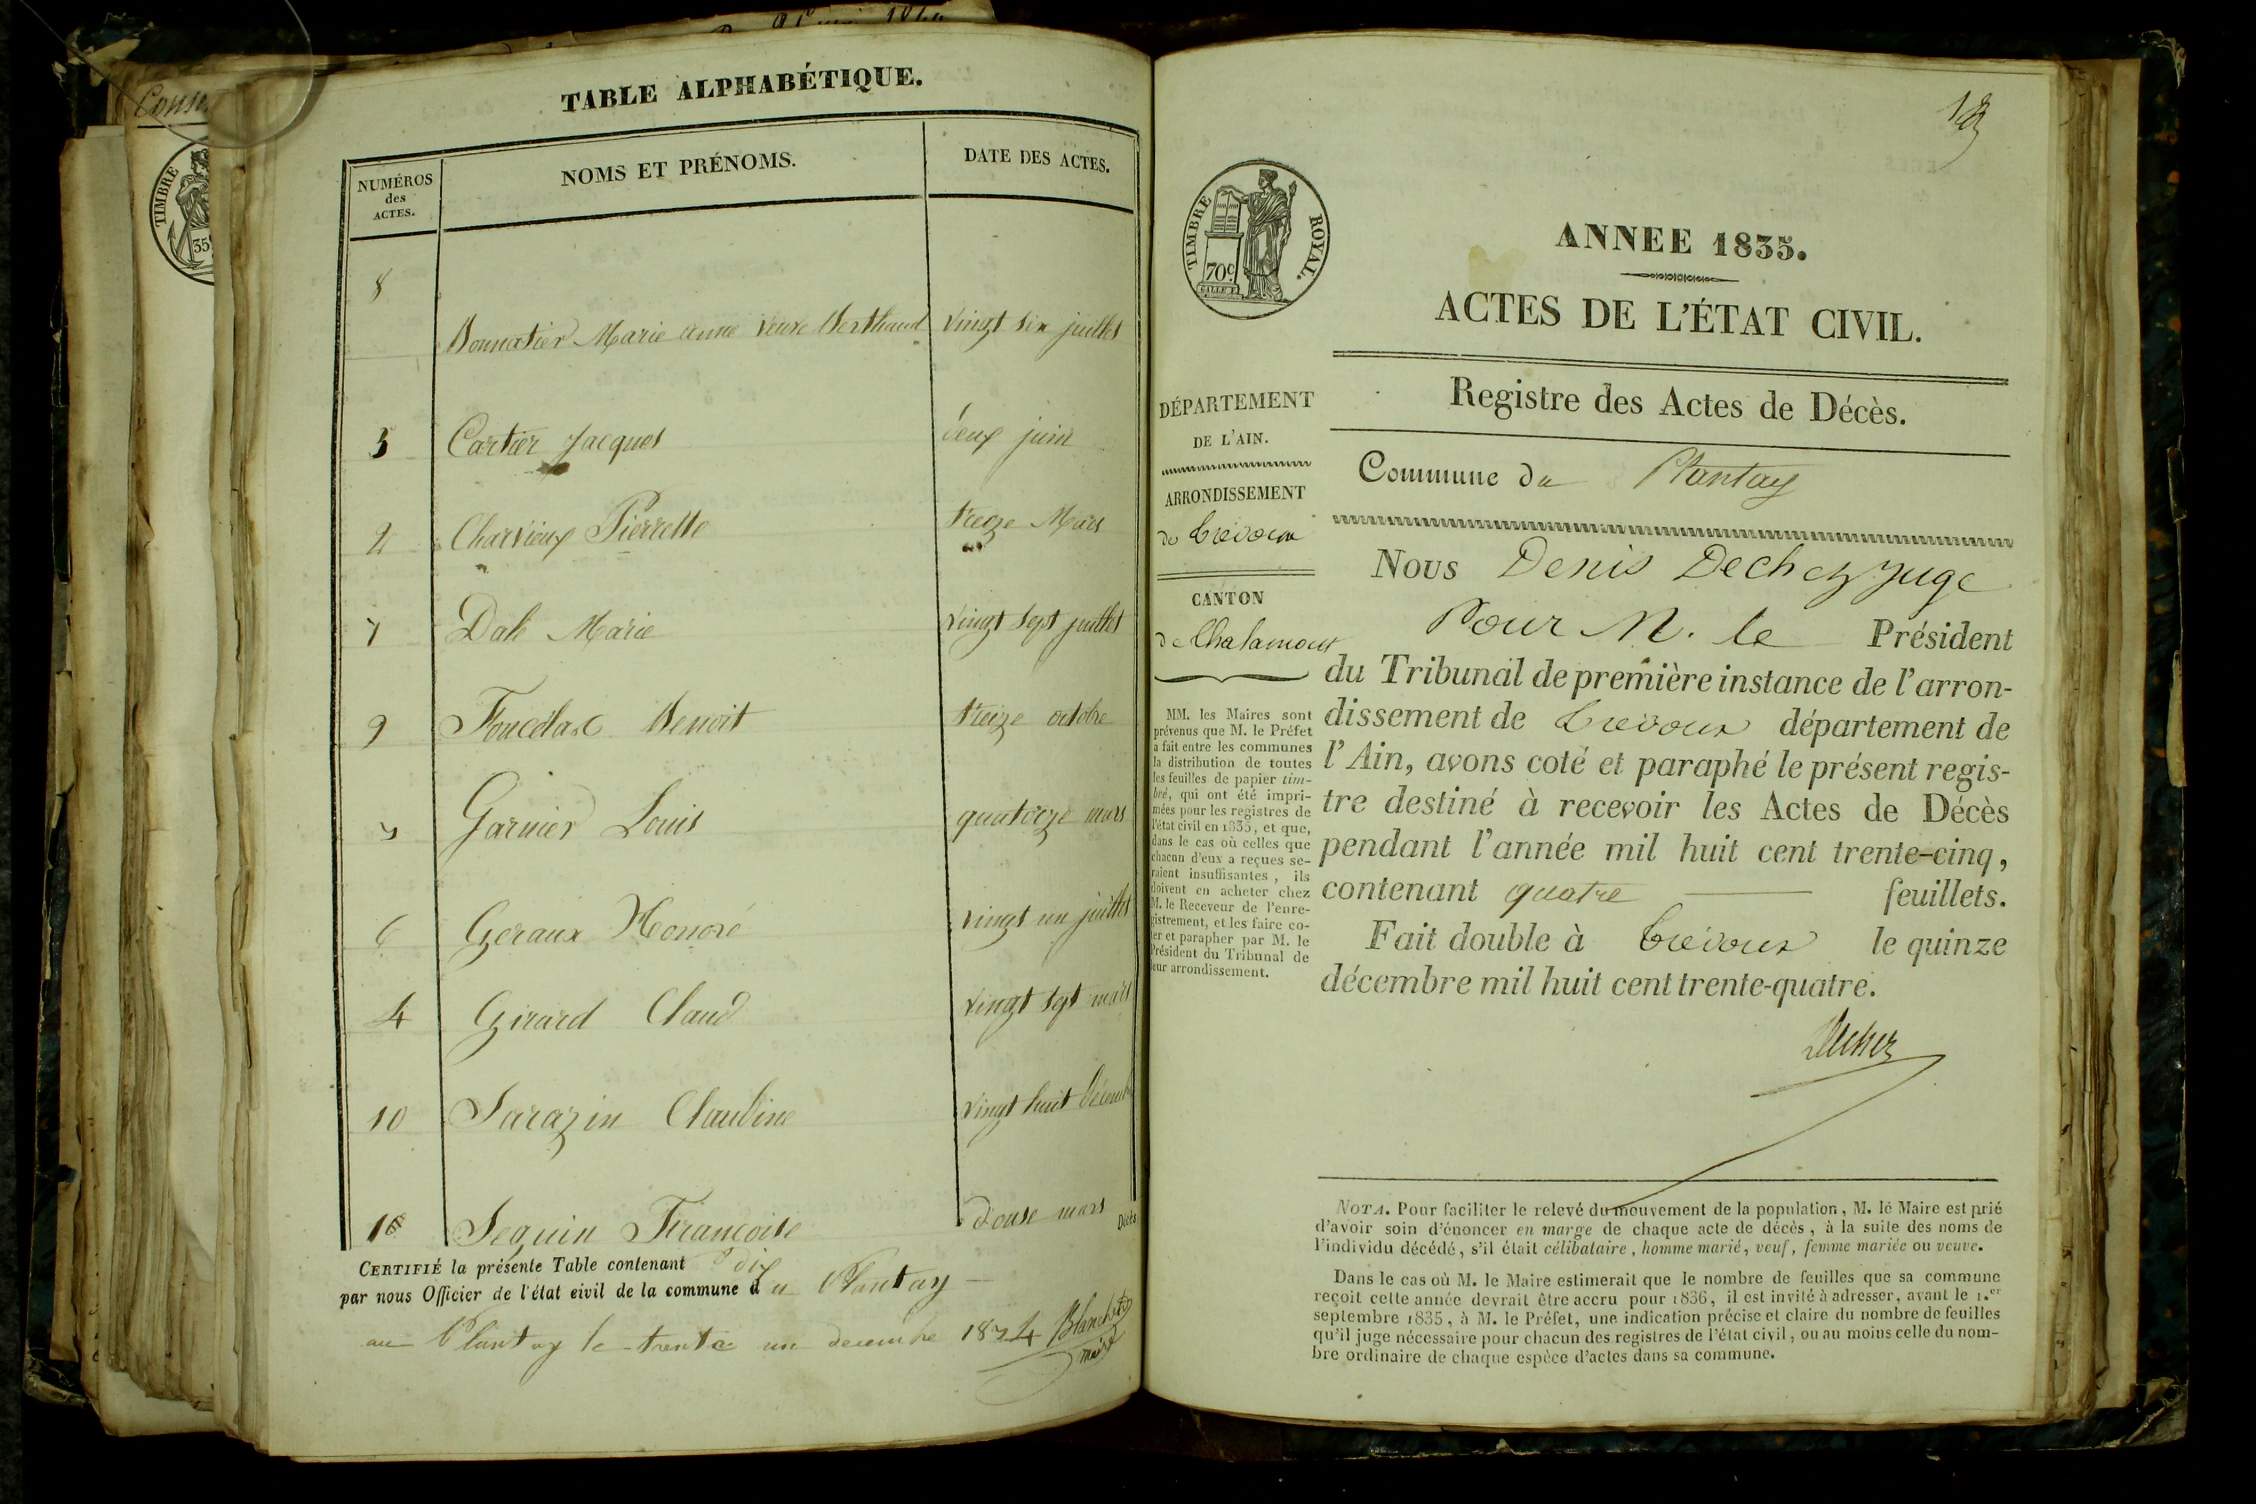 Conse
TIMBRE
35
TABLE ALPHABÉTIQUE.
NUMÉROS
des
ACTES.
NOMS ET PRÉNOMS.
DATE DES ACTES.
8
Bonnatier Marie anne veuve Berthaud vingt six juillet
5 Cartier Jacques deux juin
2 Charvieux Pierrette treize Mars
7 Marie vingt sept juillet
9 Benoit treize octobre
3 Garnier Louis quatorze mars
6 Geraux Honoré vingt un juillet
4 Girard Claud vingt sept mars
10 Sarazin Claudine vingt huit décembre
1 Seguin Francoise douse mars
Décès
CERTIFIÉ la présente Table contenant dix
par nous Officier de l'état civil de la commune du Plantay
au Plantay le trente un decembre 1834
maire
18
TIMBRE ROYAL.
70c
ANNEE 1835.
ACTES DE L'ÉTAT CIVIL.
Registre des Actes de Décès.
Commune du Plantay
DÉPARTEMENT
DE L'AIN.
ARRONDISSEMENT
de Trévoux
CANTON
de Chalamont
MM. les Maires sont
prévenus que M. le Préfet
a fait entre les communes
la distribution de toutes
les feuilles de papier tim-
bré, qui ont été impri-
mées pour les registres de
l'état civil en 1835, et que,
dans le cas où celles que
chacun d'eux a reçues se-
raient insuffisantes, ils
doivent en acheter chez
M. le Receveur de l'enre-
gistrement, et les faire co-
ter et parapher par M. le
Président du Tribunal de
leur arrondissement.
Nous Denis Dechez juge
Pour M. le Président
du Tribunal de première instance de l'arron-
dissement de Trévoux département de
l'Ain, avons coté et paraphé le présent regis-
tre destiné à recevoir les Actes de Décès
pendant l'année mil huit cent trente-cinq,
contenant quatre feuillets.
Fait double à Trévoux le quinze
décembre mil huit cent trente-quatre.
Dechez
NOTA. Pour faciliter le relevé du mouvement de la population, M. le Maire est prié
d'avoir soin d'énoncer en marge de chaque acte de décès, à la suite des noms de
l'individu décédé, s'il était célibataire, homme marié, veuf, femme mariée ou veuve.
Dans le cas où M. le Maire estimerait que le nombre de feuilles que sa commune
reçoit cette année devrait être accru pour 1836, il est invité à adresser, avant le 1.er
septembre 1835, à M. le Préfet, une indication précise et claire du nombre de feuilles
qu'il juge nécessaire pour chacun des registres de l'état civil, ou au moins celle du nom-
bre ordinaire de chaque espèce d'actes dans sa commune.